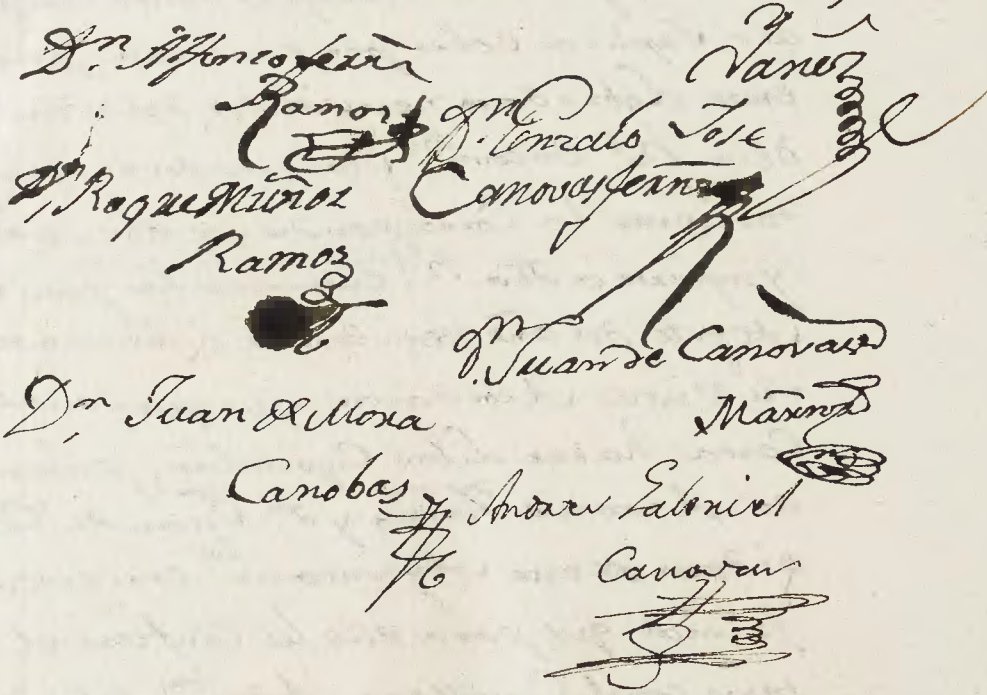 Dn. Alfonso fern
Ramos
Yañez
Dn. Gonzalo Jose
Canovas fernz
Dn. Roque Muñoz
Ramos
Dn. Juan de Canovas
Marnz
Dn. Juan de Mora
Canobas
Andres Gabriel
Canovas